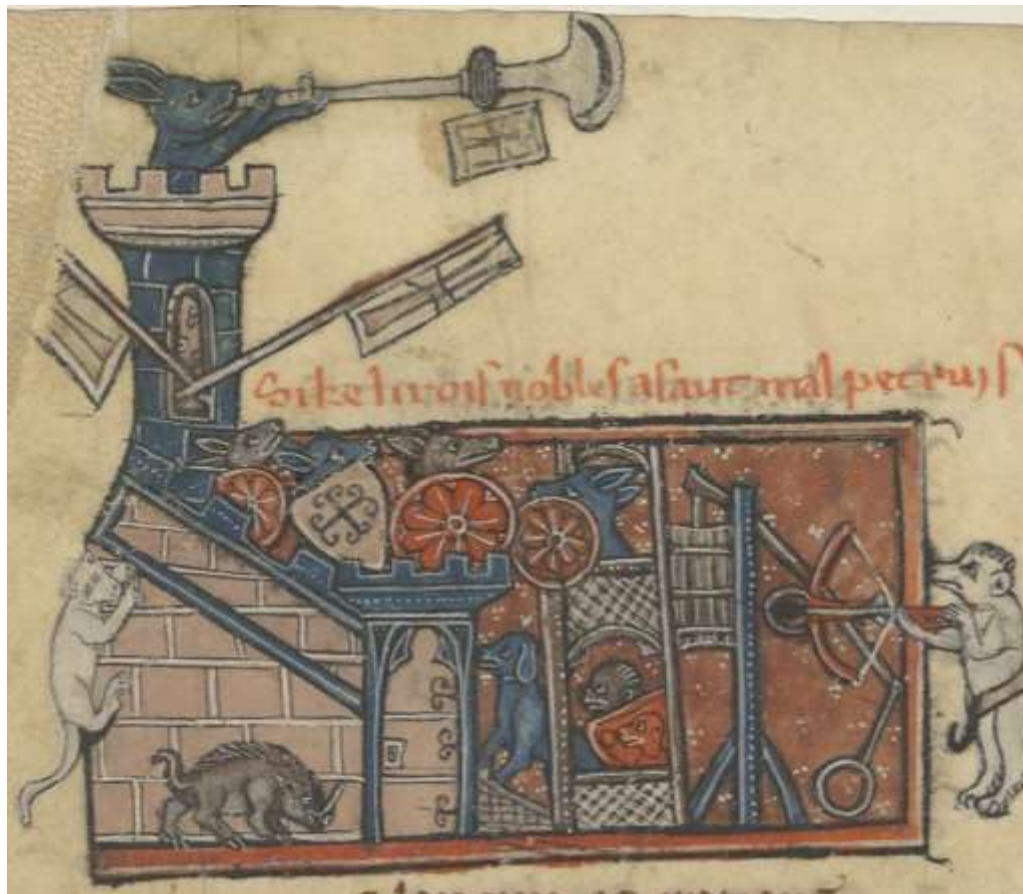 Si ke li rois nobles asaut mal pertuis